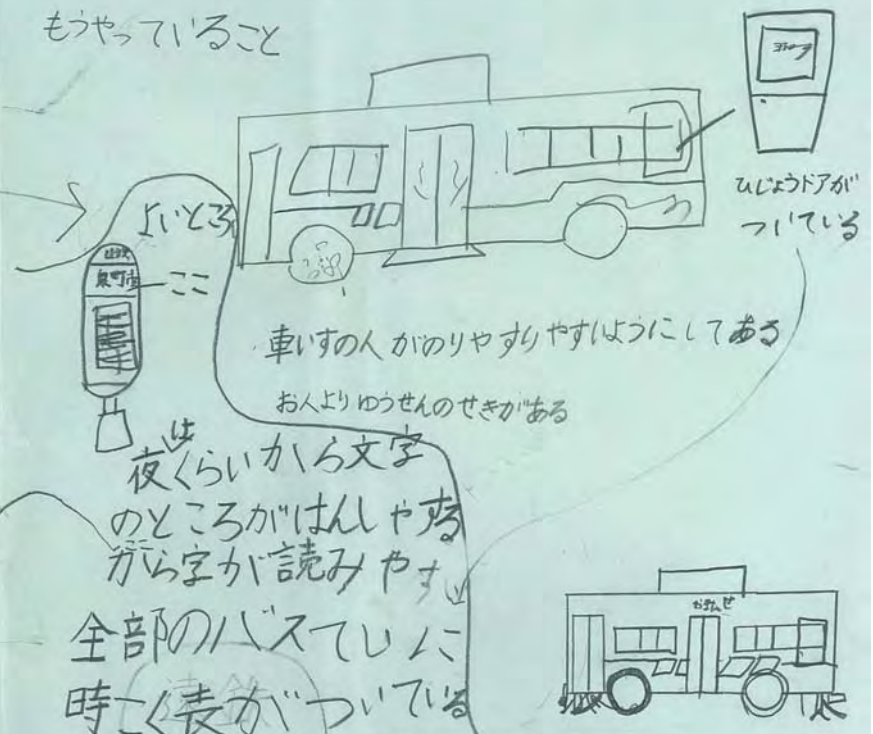 もうやっていること
ひじょうドアが
ついている
よいところ
ここ
車いすの人がのりやすりやすいようにしてある
お人よりゆうせんのせきがある
夜はくらいから文字
のところがはんしゃする
から字が読みやすい
全部のバスていに
時こく表がついている